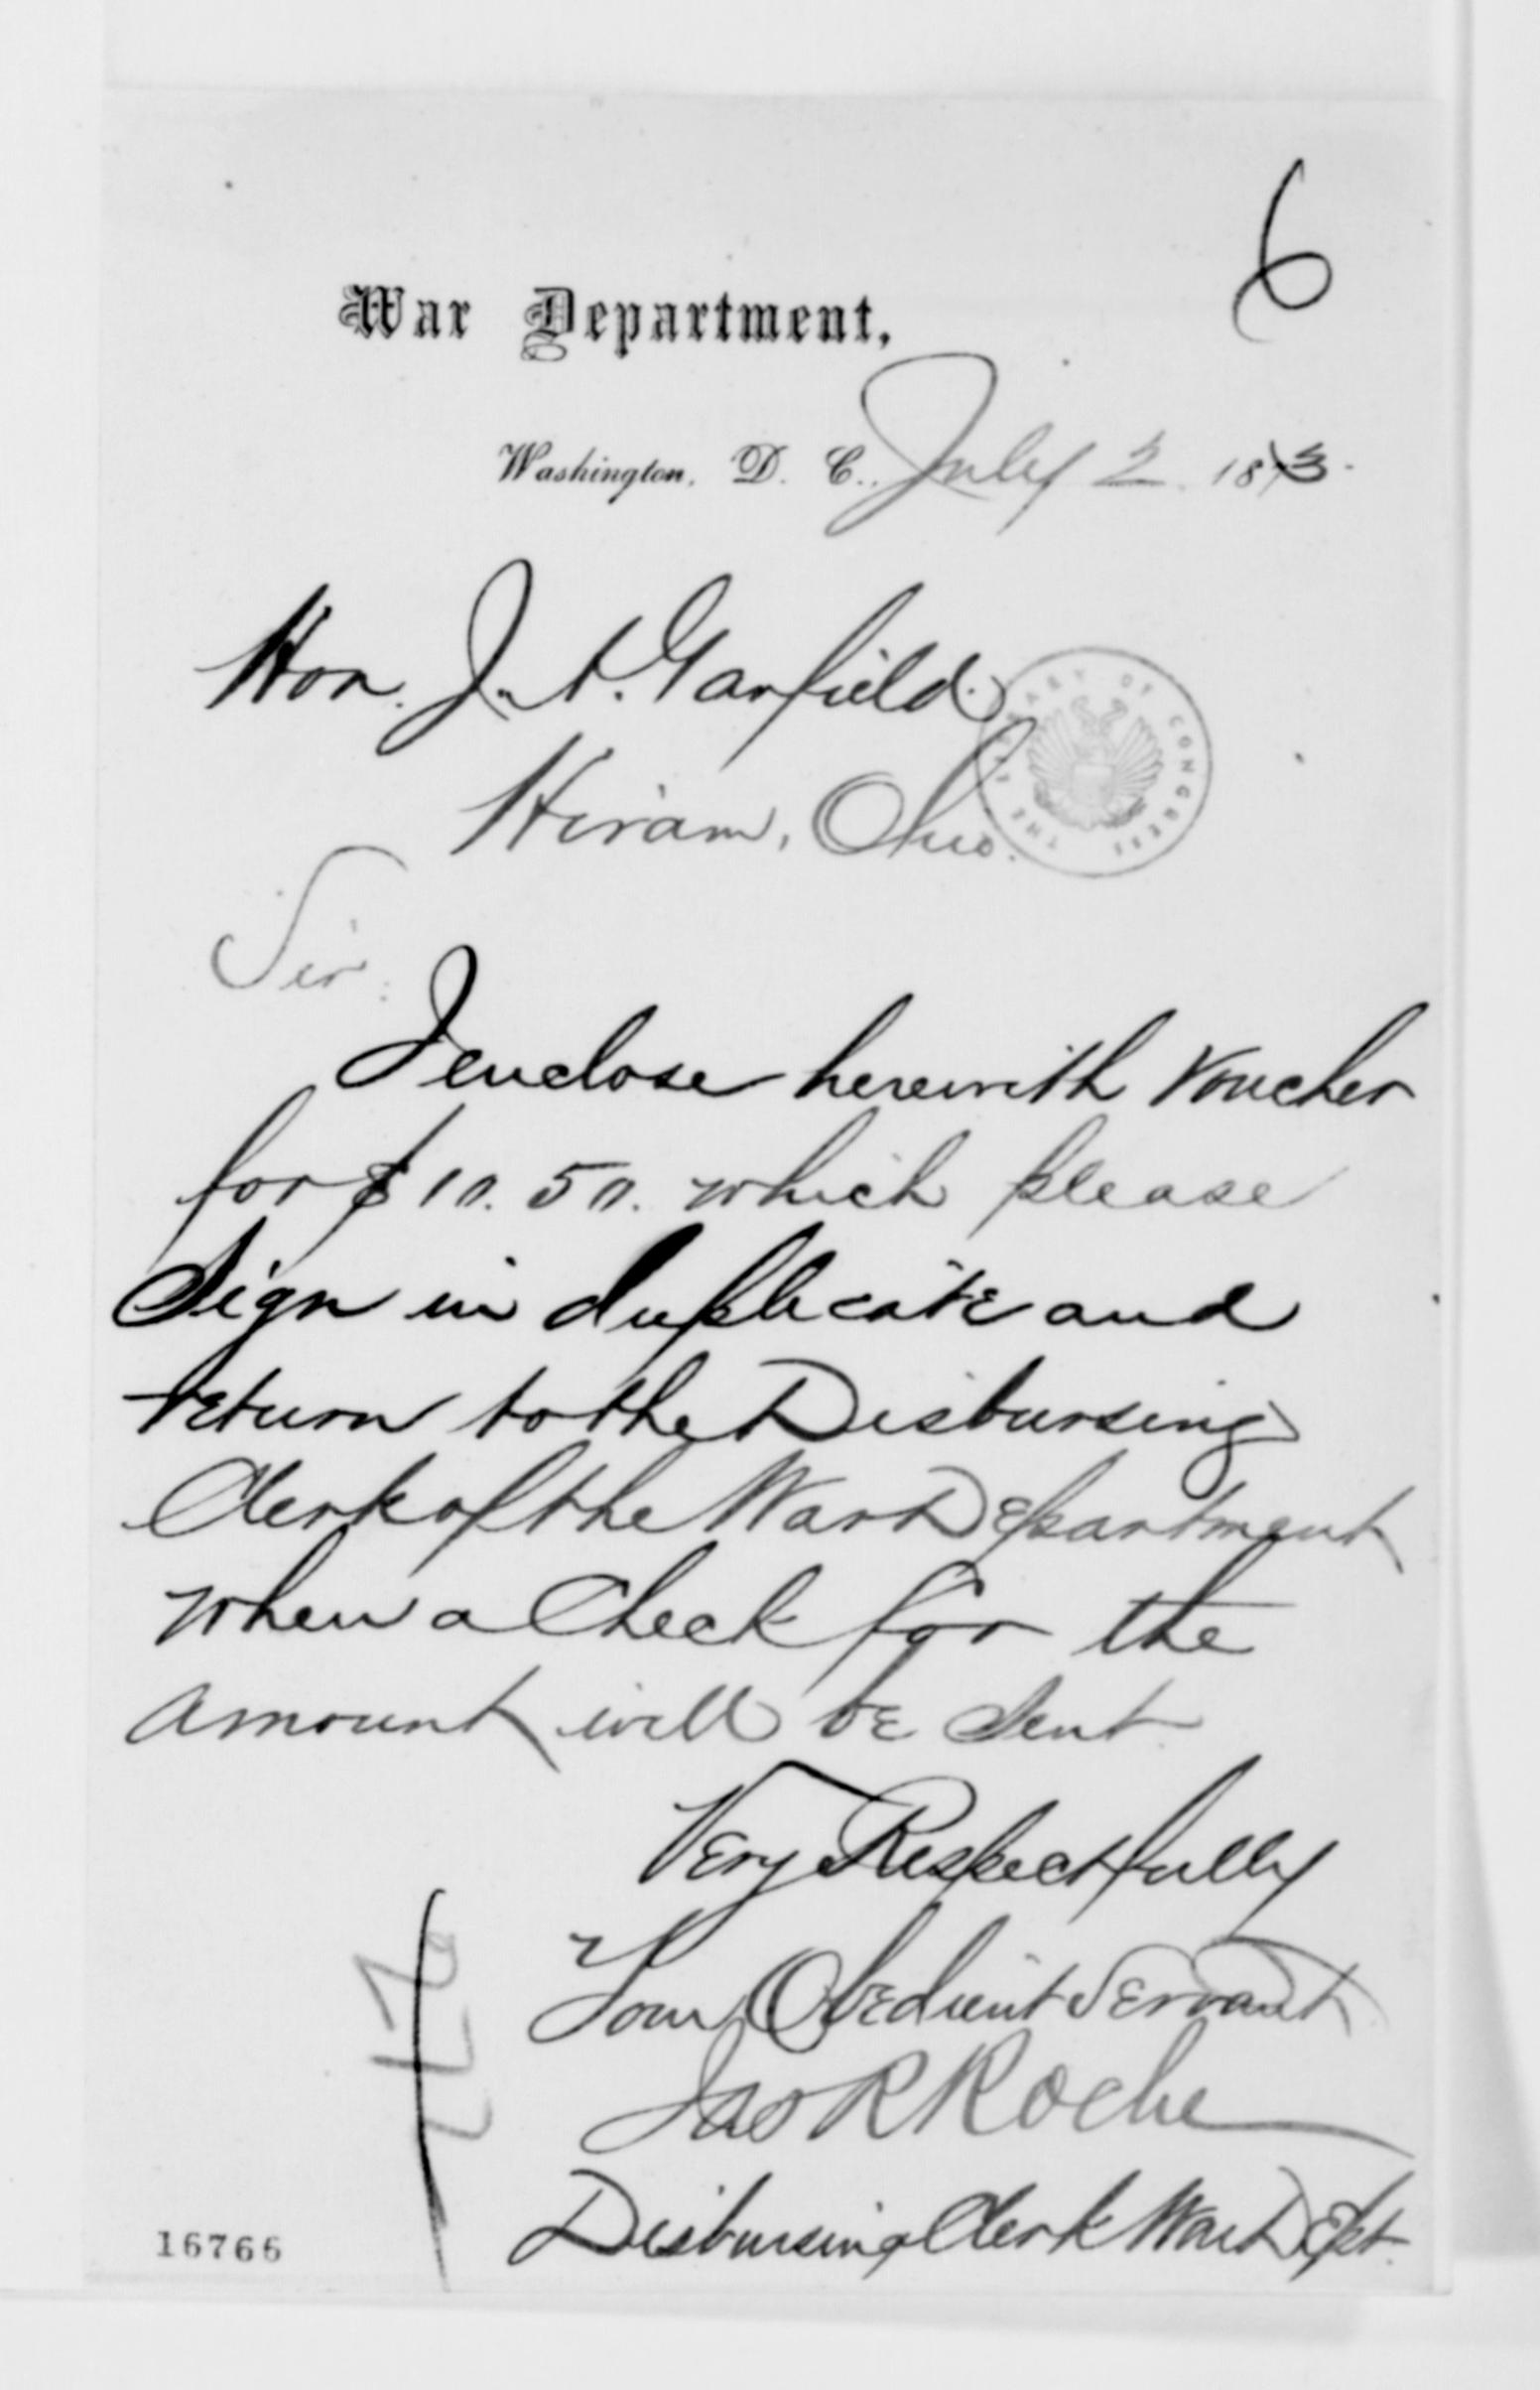 6
War Department,
Washington, D. C., July 2 1873.
Hon. J. A. Garfield
Hiram, Ohio.
THE LIBRARY OF CONGRESS
Sir:
I enclose herewith voucher
for $10.50. which please
Sign in duplicate and
return to the Disbursing
Clerk of the War Department
when a Check for the
amount will be sent
Very Respectfully
Your Obedient Servant
Jno R Roche
Disbursing Clerk War Dept.
16766